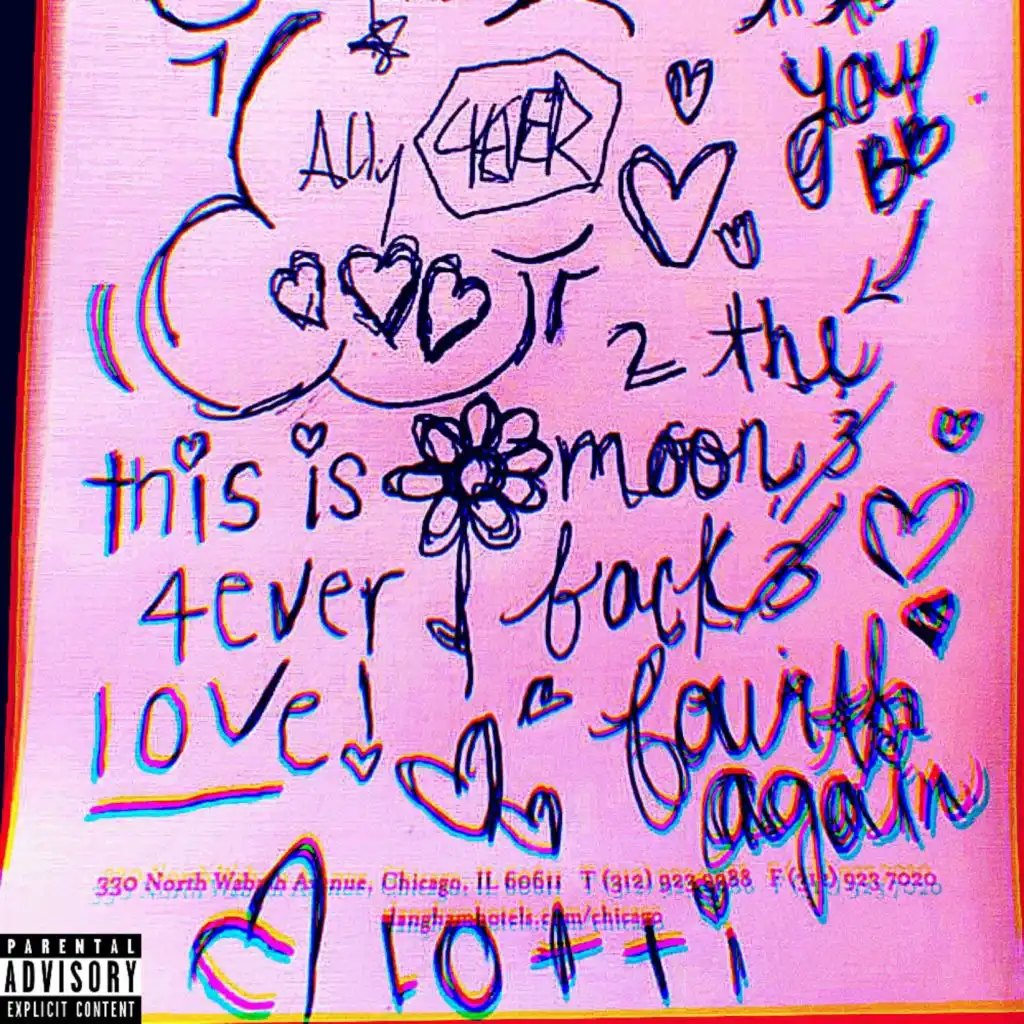 Ally 4EVER
you
BB
2 the
moon &
back &
fourth
again
this is
4ever
love!
330 North Wabash Avenue, Chicago, IL 60611 T (312) 923 9988 F (312) 923 7020
langhamhotels.com/chicago
Lotti
PARENTAL
ADVISORY
EXPLICIT CONTENT